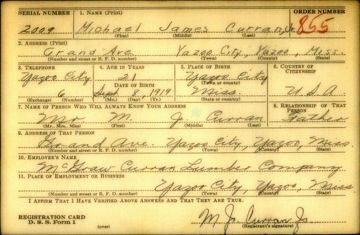 SERIAL NUMBER 1. NAME (Print) ORDER NUMBER
2009 Michael James Curran Jr 855
(First) (Middle) (Last)
2. ADDRESS (Print)
Grand Ave Yazoo City, Yazoo, Miss.
(Number and street or R. F. D. number) (Town) (County) (State)
3. TELEPHONE 4. AGE IN YEARS 5. PLACE OF BIRTH 6. COUNTRY OF CITIZENSHIP
Yazoo City 21 Yazoo City
DATE OF BIRTH
6 Sept 8 1919 Miss. U S A
(Exchange) (Number) (Mo.) (Day) (Yr.) (State or country)
7. NAME OF PERSON WHO WILL ALWAYS KNOW YOUR ADDRESS 8. RELATIONSHIP OF THAT PERSON
M. J. Curran Father
(Mr., Mrs., Miss) (First) (Middle) (Last)
9. ADDRESS OF THAT PERSON
Grand Ave. Yazoo City, Yazoo, Miss
(Number and street or R. F. D. number) (Town) (County) (State)
10. EMPLOYER'S NAME
Curran Lumber Company
11. PLACE OF EMPLOYMENT OR BUSINESS
Yazoo City, Yazoo, Miss
(Number and street or R. F. D. number) (Town) (County) (State)
I AFFIRM THAT I HAVE VERIFIED ABOVE ANSWERS AND THAT THEY ARE TRUE.
REGISTRATION CARD
D. S. S. Form 1
(over)
M. J. Curran Jr
(Registrant's signature)